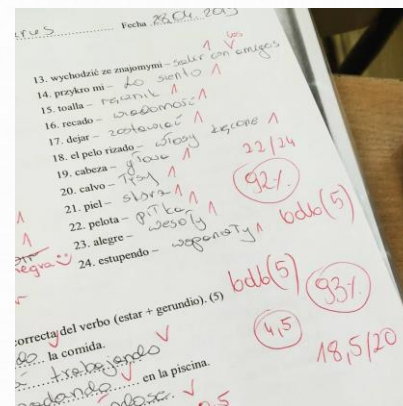 Fecha 28.04.2015
los
13. wychodzić ze znajomymi – salir con amigos 1
14. przykro mi – Lo siento 1
15. toalla – ręcznik 1
16. recado – wiadomość 1
17. dejar – zostawiać 1
18. el pelo rizado – włosy kręcone 1
19. cabeza – głowa 1
20. calvo – łysy 1
21. piel – skóra 1
22. pelota – piłka 1
23. alegre – wesoły 1
24. estupendo – wspaniały 1
22/24
92%
bdb(5)
negra
bdb(5)
93%
4,5
18,5/20
correcta del verbo (estar + gerundio). (5)
la comida.
trabajando
en la piscina.